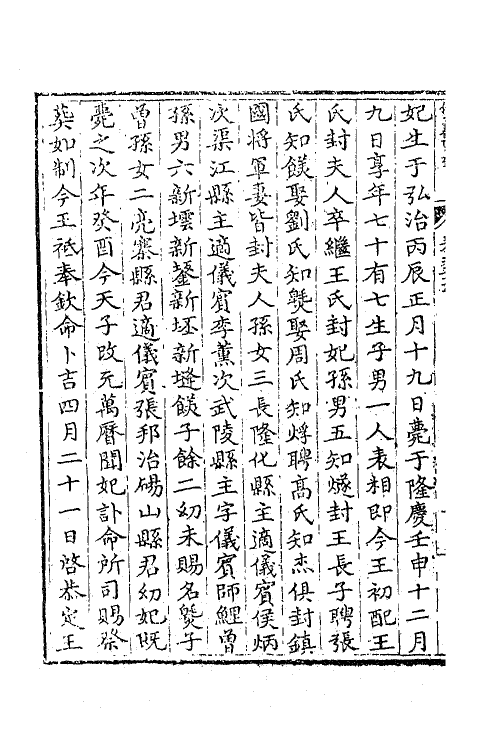 妃生于弘治丙辰正月十九日薨于隆慶壬申十二月
九日享年七十有七生子男一人表相即今王初配王
氏封夫人卒繼王氏封妃孫男五知㸂封王長子聘張
氏知㷿娶劉氏知㷫娶周氏知烰聘高氏知杰俱封鎮
國將軍妻皆封夫人孫女三長隆化縣主適儀賓侯炳
次渠江縣主適儀賓李薰次武陵縣主字儀賓師鯉曾
孫男六新壜新鋬新坯新塳㷿子餘二幼未賜名㷫子
曾孫女二亮寨縣君適儀賓張邦治碭山縣君幼妃既
薨之次年癸酉今天子改元萬曆聞妃訃命所司賜祭
葬如制今王祗奉欽命卜吉四月二十一日啓恭定王